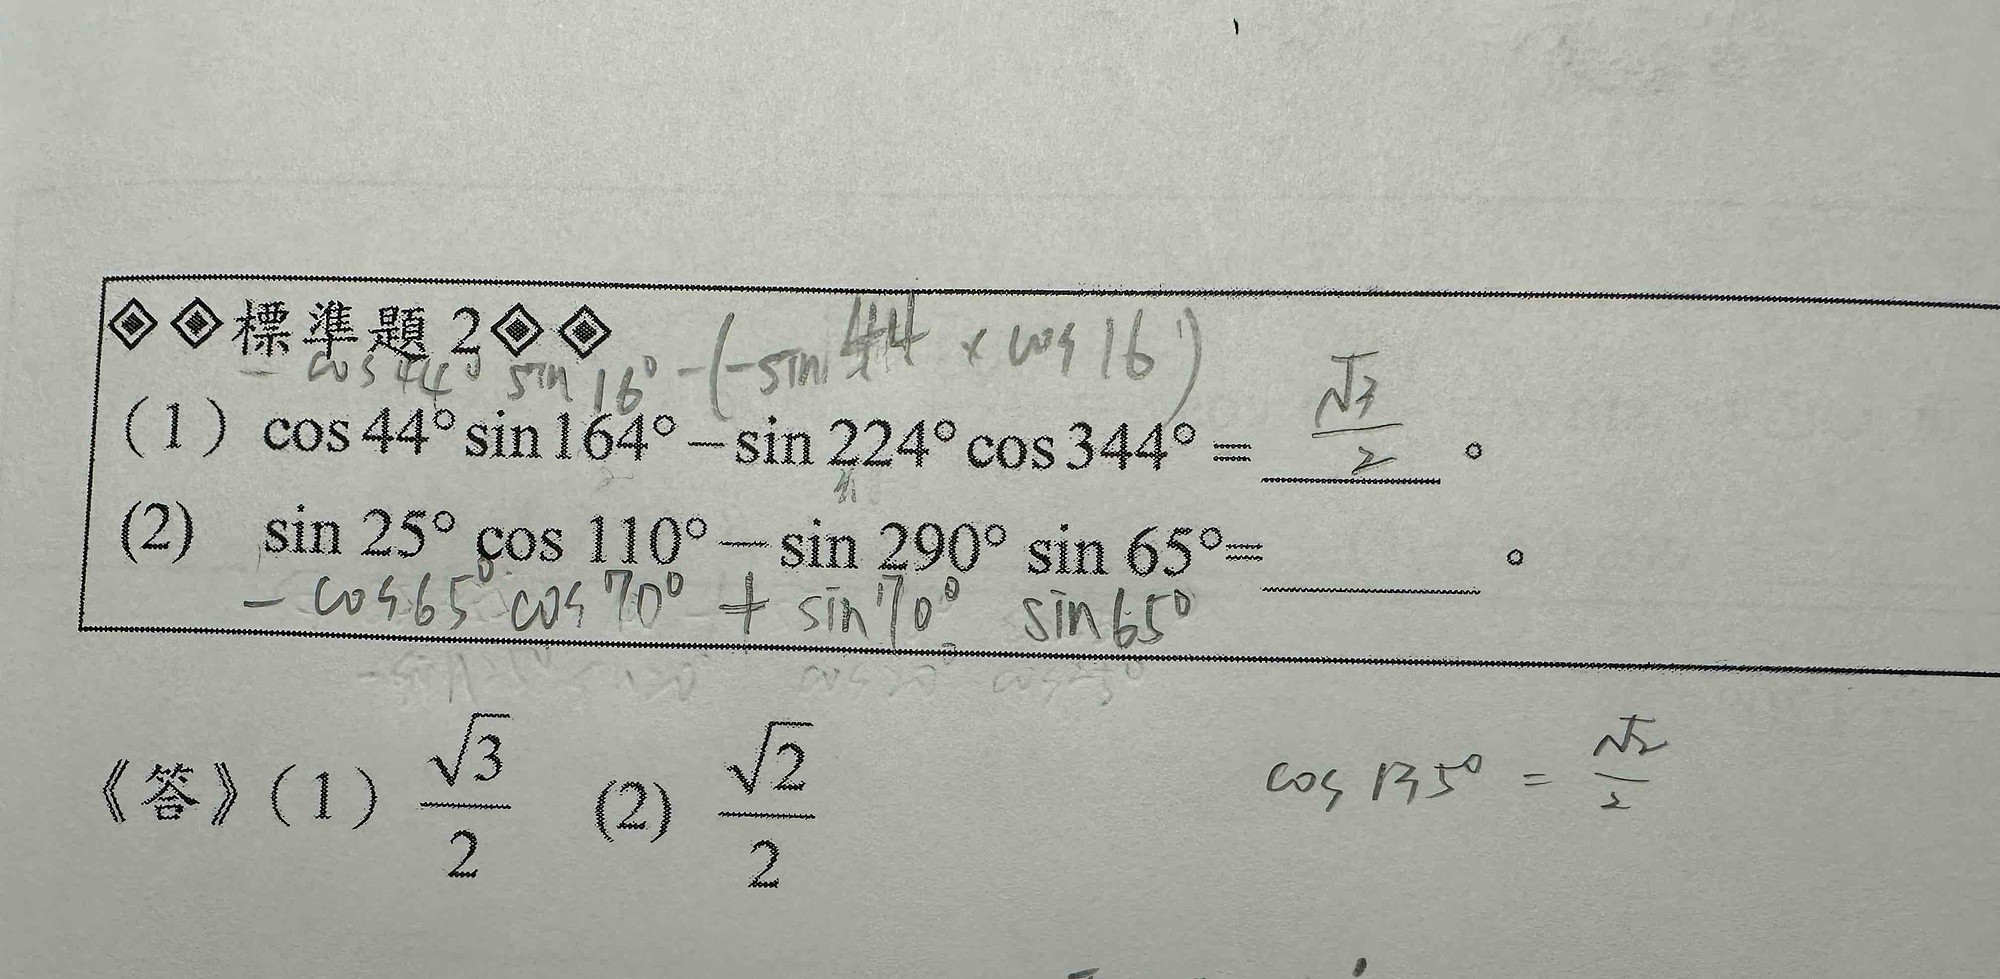 ◈◈標準題 2◈◈
- cos 44° sin 16° - (-sin 44 × cos 16)
(1) cos 44° sin 164° – sin 224° cos 344° = √3/2 。
(2) sin 25° cos 110° – sin 290° sin 65° = 。
- cos 65° cos 70° + sin 70° sin 65°
《答》(1) √3/2 (2) √2/2
cos 135° = √2/2